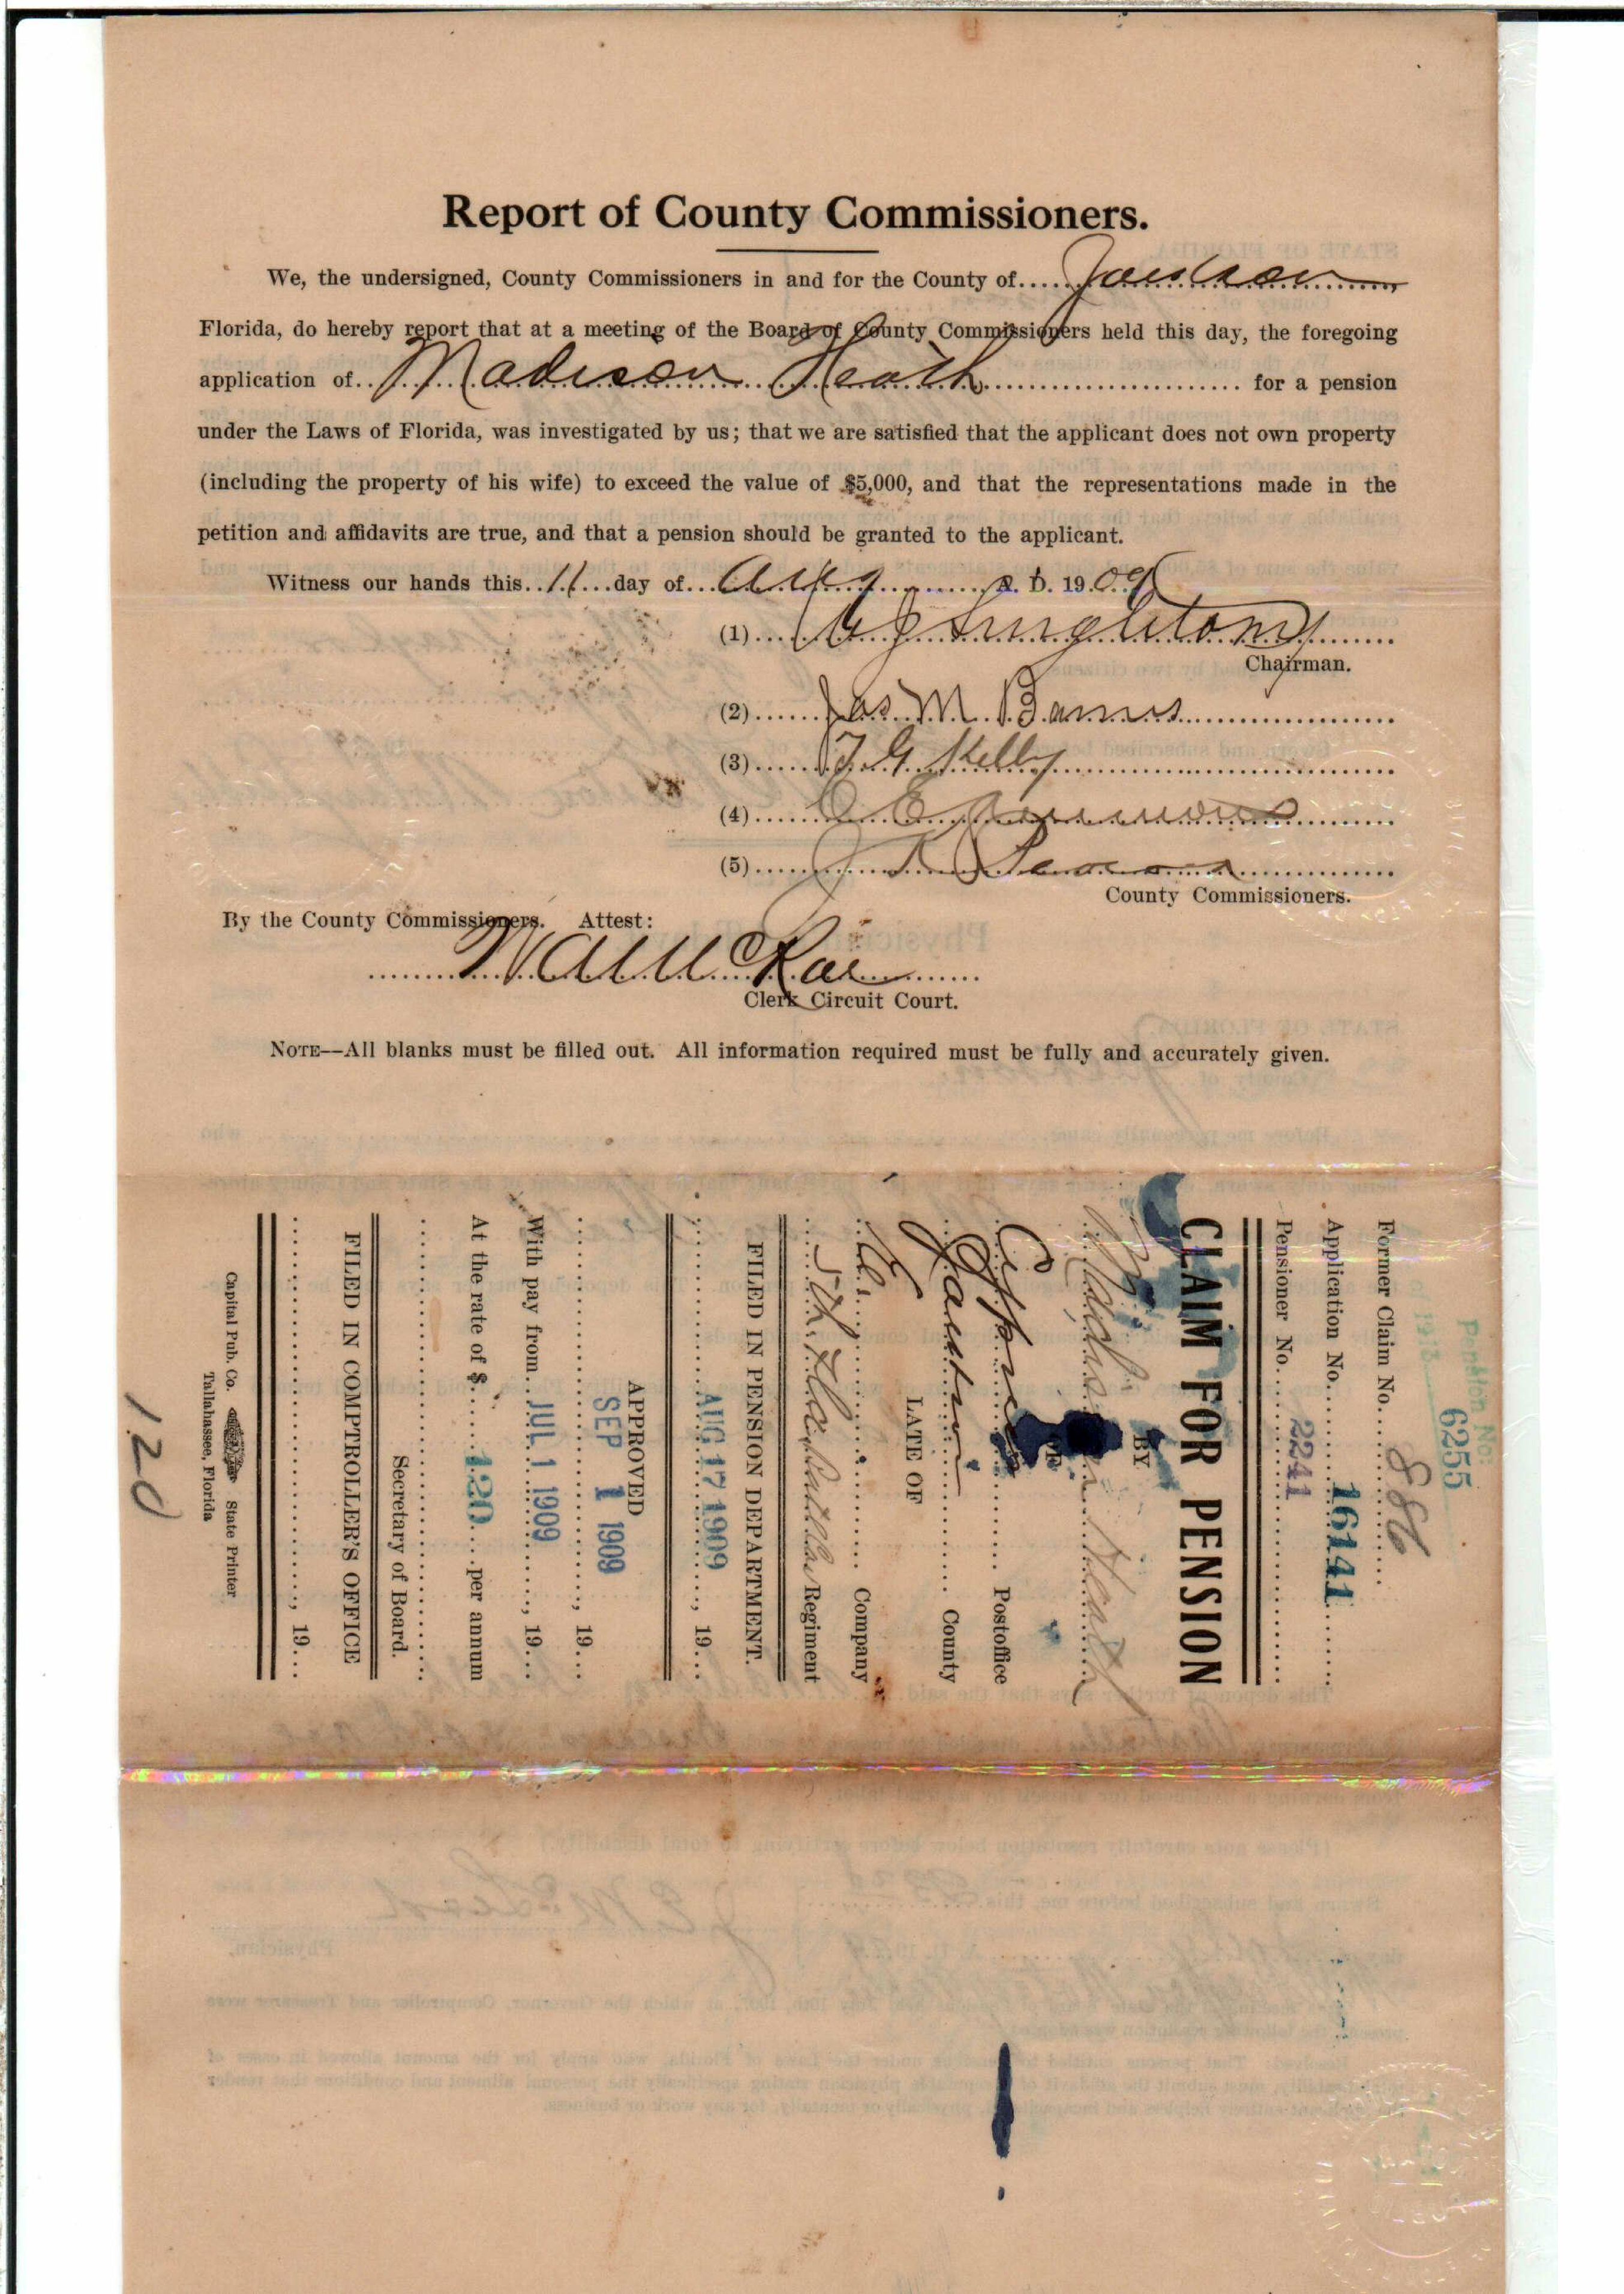 Report of County Commissioners.
We, the undersigned, County Commissioners in and for the County of Jackson,
Florida, do hereby report that at a meeting of the Board of County Commissioners held this day, the foregoing
application of Madison Heath for a pension
under the Laws of Florida, was investigated by us; that we are satisfied that the applicant does not own property
(including the property of his wife) to exceed the value of $5,000, and that the representations made in the
petition and affidavits are true, and that a pension should be granted to the applicant.
Witness our hands this 11 day of Aug A. D. 1909
(1) Singletary
Chairman.
(2) Jas M. Barnes
(3) T G Kelly
(4)
(5)
County Commissioners.
By the County Commissioners. Attest:
W A McRae
Clerk Circuit Court.
NOTE—All blanks must be filled out. All information required must be fully and accurately given.
Pension No:
6255
Former Claim No. 886
Application No. 16141
Pensioner No. 2241
CLAIM FOR PENSION
BY
Madison Heath
OF
Postoffice
Jackson County
LATE OF
Company
5th Fla. Battalion Regiment
FILED IN PENSION DEPARTMENT.
AUG 17 1909, 19
APPROVED
SEP 1 1909, 19
With pay from JUL 1 1909, 19
At the rate of $ 120 per annum
Secretary of Board.
FILED IN COMPTROLLER'S OFFICE
, 19
Capital Pub. Co. State Printer
Tallahassee, Florida
120